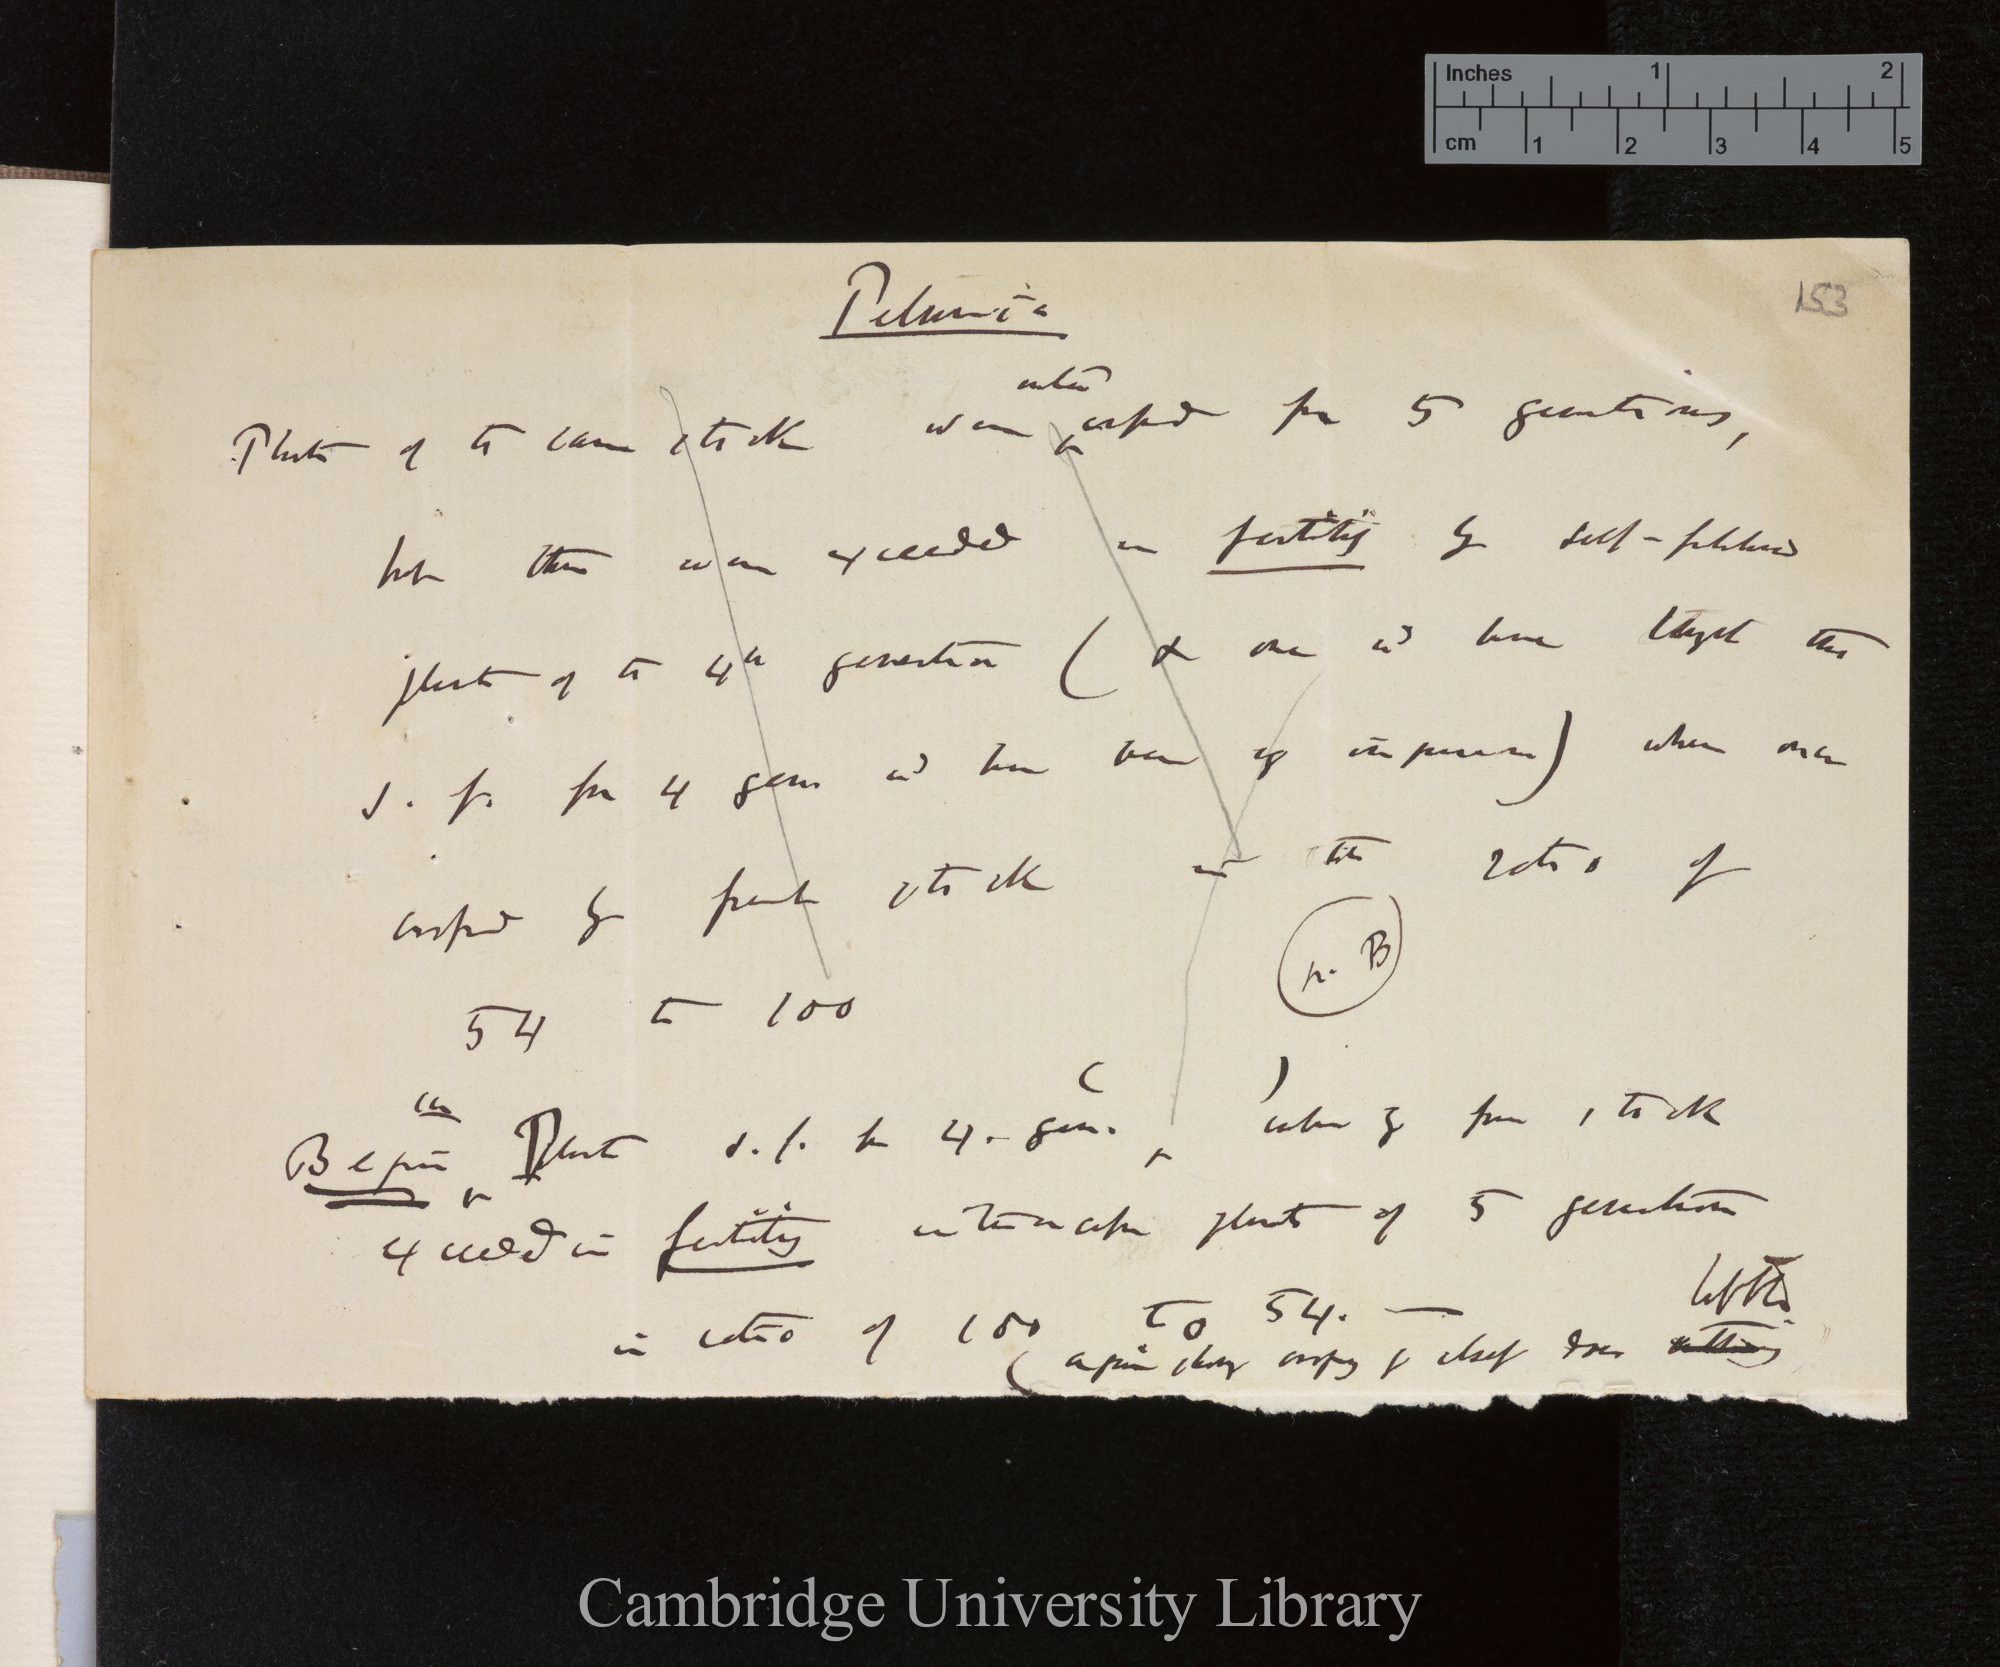 Inches 1 2
cm 1 2 3 4 5
153
Petunia
Plants of the same stock were inter crossed for 5 generations,
but these were exceeded in fertility by self-fertilised
plants of the 4th generation ( & one wd have thought that
s. f. for 4 gens wd have been of ) when once
crossed by fresh stock in the ratio of
54 to 100
(p. B)
( )
Begin Plants s. f. for 4. gens. when by fresh stock
exceeded in fertility intercrossed plants of 5 generations
in ratio of 100 to 54. —
little
( again shows crossing of itself does nothing
Cambridge University Library